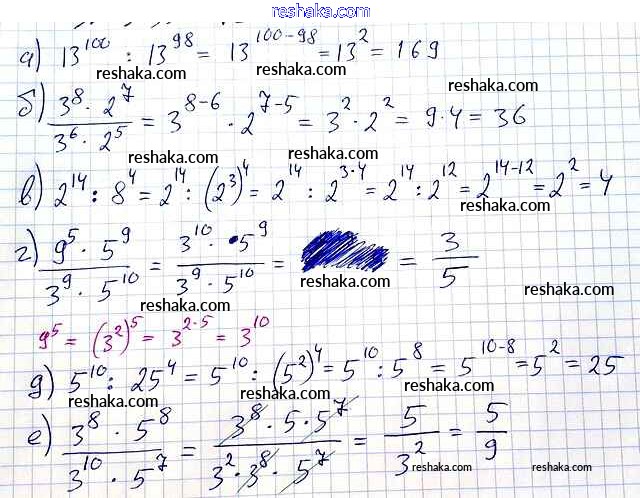 reshaka.com
а) 13^100 : 13^98 = 13^(100-98) = 13^2 = 169
reshaka.com reshaka.com
б) (3^8 · 2^7)/(3^6 · 2^5) = 3^(8-6) · 2^(7-5) = 3^2 · 2^2 = 9·4 = 36
reshaka.com reshaka.com
в) 2^14 : 8^4 = 2^14 : (2^3)^4 = 2^14 : 2^(3·4) = 2^14 : 2^12 = 2^(14-12) = 2^2 = 4
reshaka.com reshaka.com
г) (9^5 · 5^9)/(3^9 · 5^10) = (3^10 · 5^9)/(3^9 · 5^10) = = 3/5
reshaka.com reshaka.com reshaka.com
9^5 = (3^2)^5 = 3^(2·5) = 3^10
reshaka.com reshaka.com
д) 5^10 : 25^4 = 5^10 : (5^2)^4 = 5^10 : 5^8 = 5^(10-8) = 5^2 = 25
reshaka.com reshaka.com
е) (3^8 · 5^8)/(3^10 · 5^7) = (3^8 · 5 · 5^7)/(3^2 · 3^8 · 5^7) = 5/3^2 = 5/9
reshaka.com reshaka.com reshaka.com